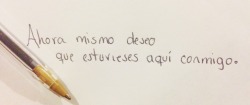 Ahora mismo deseo
que estuvieses aquí conmigo.